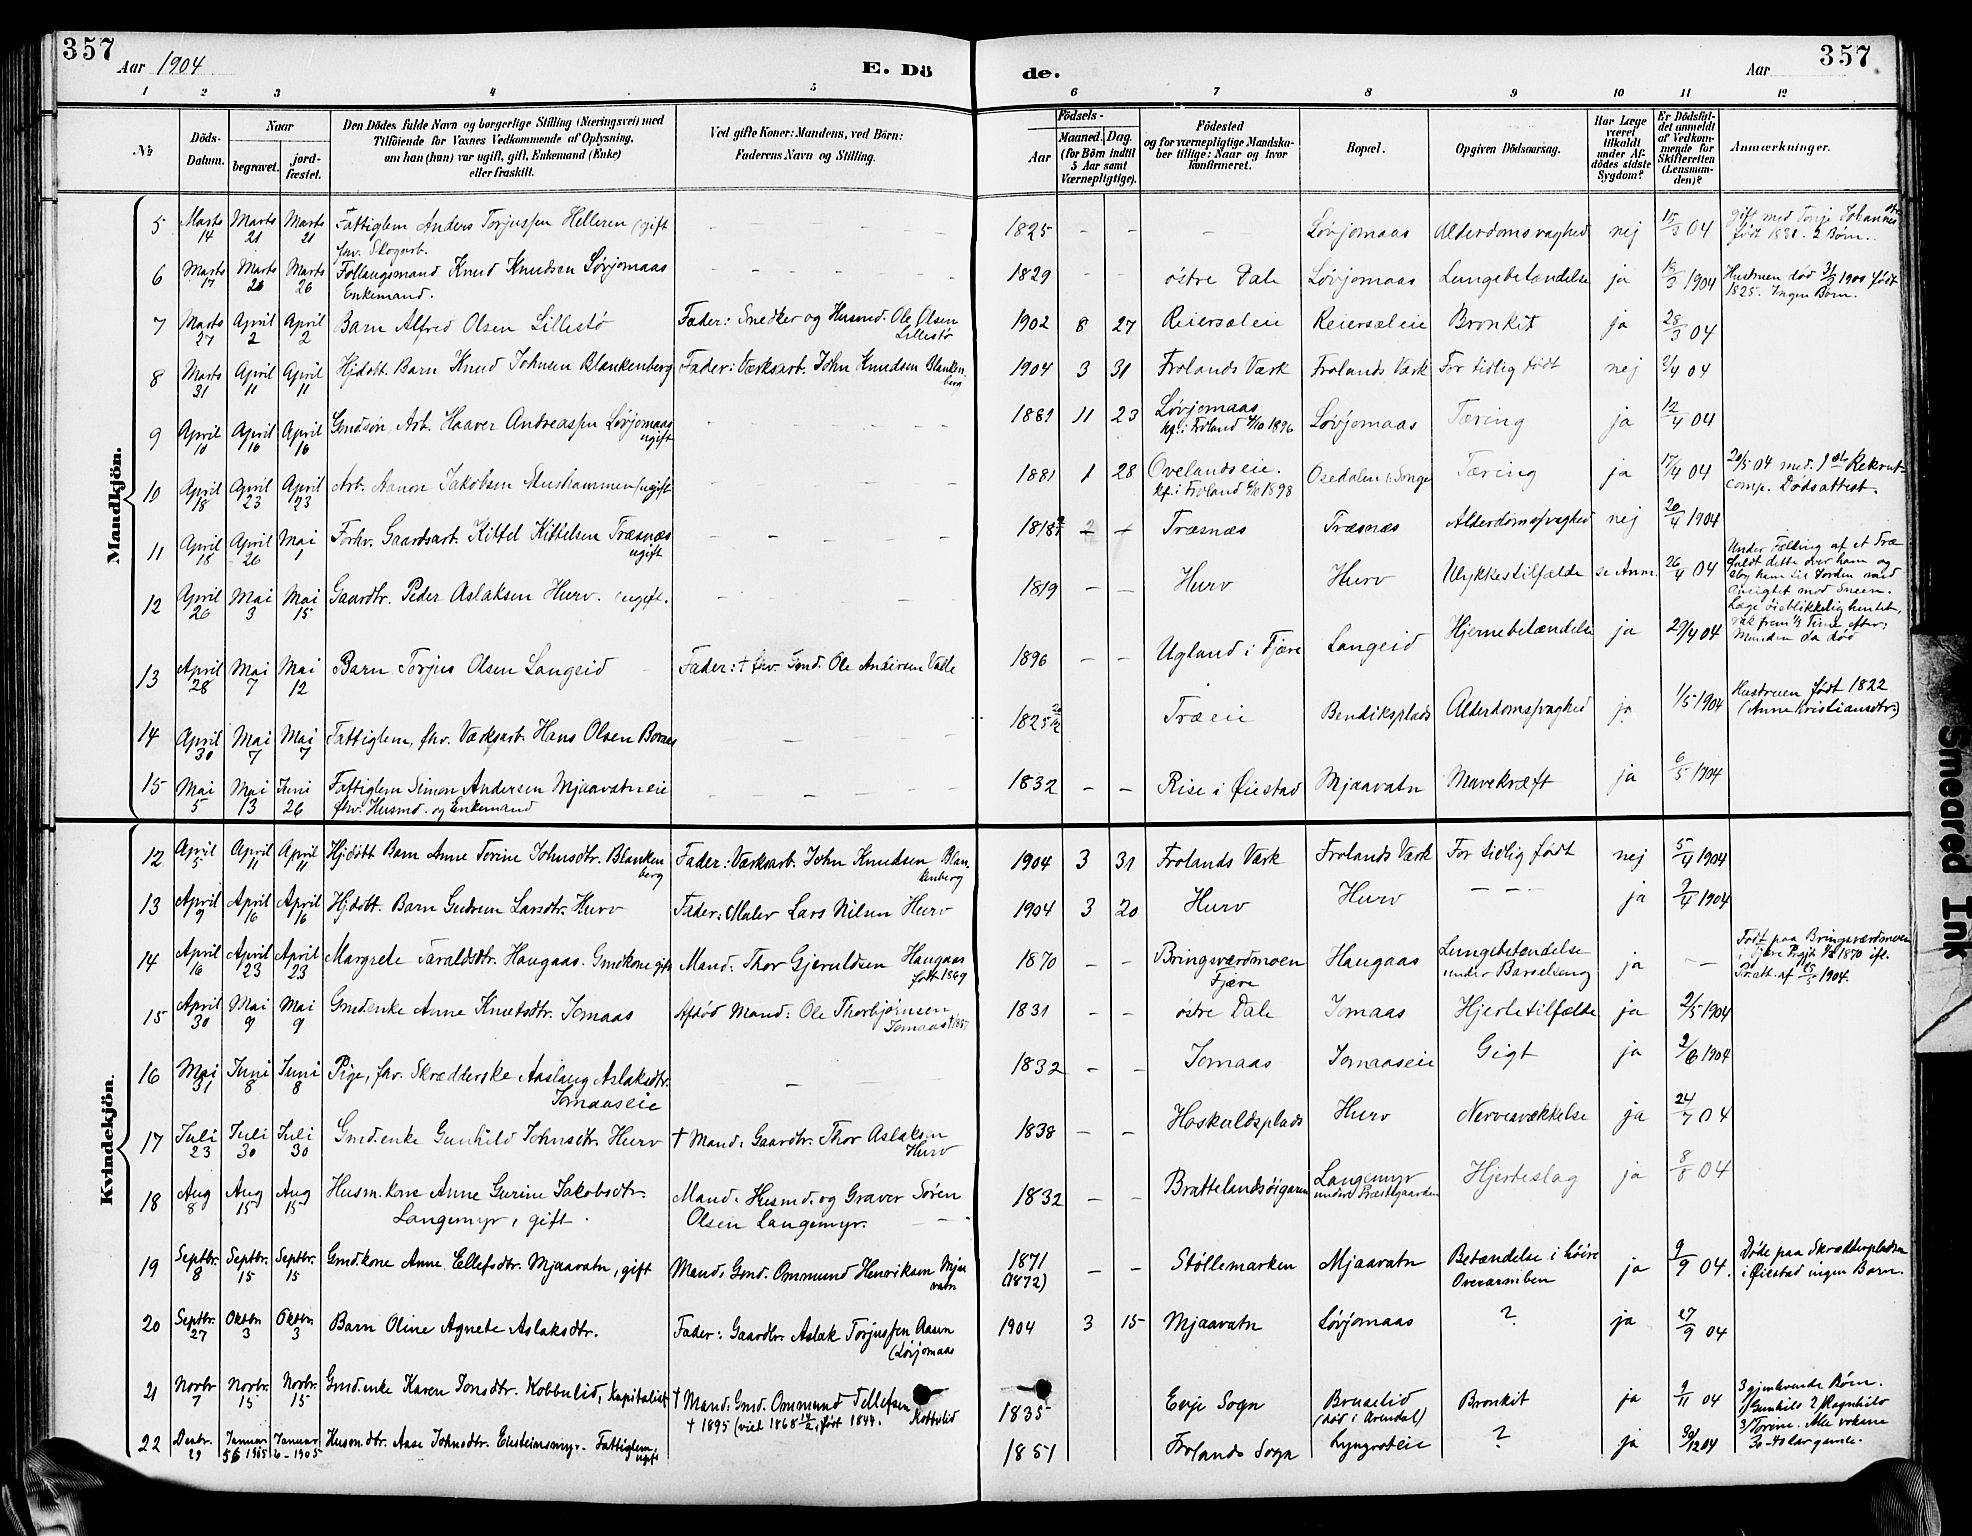 357
Aar 1904
E. Dö
de.
Aar
357
1 2 3 4 5 6 7 8 9 10 11 12
№
Döds-
Datum.
Naar
begravet.
jord-
fæstet.
Den Dödes fulde Navn og borgerlige Stilling (Næringsvei) med
Tilföiende for Voxnes Vedkommende af Oplysning,
om han (hun) var ugift, gift, Enkemand (Enke)
eller fraskilt.
Ved gifte Koner: Mandens, ved Börn:
Faderens Navn og Stilling.
Födsels-
Aar
Maaned. Dag.
(for Börn indtil
5 Aar samt
Værnepligtige).
Födested
og for værnepligtige Mandska-
ber tillige: Naar og hvor
konfirmeret.
Bopæl.
Opgiven Dödsaarsag.
Har Læge
været
tilkaldt
under Af-
dödes sidste
Sygdom?
Er Dödsfal-
det anmeldt
af Vedkom-
mende for
Skifteretten
(Lensman-
den)?
Anmærkninger.
Mandkjön.
5 Marts 14 Marts 21 Marts 21 Fattiglem Anders Torjussen Helleren gift fhv. Skogarb. 1825 – – – Løvjomaas Alderdomsvaghed nej 15/3 04 gift med Tonje Johannesdtr født 1831. 2 Børn.
6 Marts 17 Marts 26 Marts 26 Knud Knudsen Løvjomaas Enkemand. 1829 – – østre Dale Løvjomaas Lungebetændelse ja 18/3 1904 Hustruen død 31/3 1900 født 1825. Ingen Børn.
7 Marts 27 April 2 April 2 Barn Alfred Olsen Lillestø Fader: Snedker og Husmd. Ole Olsen Lillestø 1902 8 27 Reiersøleie Reiersøleie Bronkit ja 28/3 04
8 Marts 31 April 11 April 11 Hjdøbt. Barn Knud Johnsen Blankenberg Fader: Værksarb. John Knudsen Blankenberg 1904 3 31 Frolands Værk Frolands Værk For tidlig født nej 2/4 04
9 April 10 April 16 April 16 Gmdsøn Arb. Haaver Andreassen Løvjomaas ugift 1881 11 23 Løvjomaas kf. i Froland 4/10 1896 Løvjomaas Tæring ja 12/4 04
10 April 18 April 23 April 23 Arb. Aanon Jakobsen Mushammer ugift 1881 1 28 Ovelandseie. kf. i Froland 1898 Osedalen Tæring ja 17/4 04 20/5 04 med. 1ste Rekrut-comp. Dødsattest.
11 April 18 April 26 Mai 1 Forhv. Gaardsarb. Kittel Kittelsen Træsnæs ugift 1818 Træsnæs Træsnæs Alderdomsvaghed nej 20/4 1904
12 April 26 Mai 3 Mai 15 Gaardbr. Peder Aslaksen Hurv. ugift. 1819 – – Hurv Hurv Ulykkestilfælde se Anm. 26/4 04 Under Fælling af et Træ faldt dette over ham og slog ham til Jorden med ansigtet mod Sneen. Læge øieblikkelig hentet, var frem ½ Time efter; Manden da død
13 April 28 Mai 7 Mai 12 Barn Torjus Olsen Langeid Fader: † fhv. Gmd. Ole Andersen Valle 1896 – – Ugland i Fjære Langeid Hjernebetændelse ja 29/4 04
14 April 30 Mai 7 Mai 7 Fattiglem, fhv. Værksarb. Hans Olsen Boraas 1825 Træeie Bendiksplads Alderdomsvaghed ja 1/5 1904 Hustruen født 1822 (Anne Kristiansdtr.)
15 Mai 5 Mai 13 Juni 26 Fattiglem Simon Andersen Mjaavatneie fhv. Husmd. og Enkemand 1832 – – Rise i Øiestad Mjaavatn Mavekræft ja 6/5 1904
Kvindekjön.
12 April 5 April 11 April 11 Hjdøbt Barn Anne Torine Johnsdtr. Blankenberg Fader: Værksarb. John Knudsen Blankenberg 1904 3 31 Frolands Værk Frolands Værk For tidlig født nej 5/4 1904
13 April 9 April 16 April 16 Hjdøbt. Barn Gudrun Larsdtr. Hurv Fader: Maler Lars Nilsen Hurv 1904 3 20 Hurv Hurv – – – ja 9/4 1904
14 April 16 April 23 April 23 Margrete Taraldsdtr. Haugaas. Gmdkone gift Mand: Thor Gjeruldsen Haugaas født 1869 1870 – – Bringsværdmoen Fjære Haugaas Lungebetændelse under Barselseng ja – Født paa Bringsværdmoen i Fjære Prgjt. 1870 ifl. Præatt. af 1904.
15 April 30 Mai 9 Mai 9 Gmdenke Anne Knutsdtr. Jomaas Afdød Mand: Ole Thorbjørnsen Jomaas † 1887 1831 – – østre Dale Jomaas Hjertetilfælde ja 2/5 1904
16 Mai 31 Juni 8 Juni 8 Pige, fhv. Skrædderske Aaslaug Aslaksdtr. Jomaaseie 1832 – – Jomaas Jomaaseie Gigt ja 2/6 1904
17 Juli 23 Juli 30 Juli 30 Gmd.enke Gunhild Johnsdtr. Hurv † Mand: Gaardbr. Thor Aslaksen Hurv 1838 – – Haskuldsplads Hurv Nervesvækkelse ja 24/7 04
18 Aug 8 Aug 15 Aug 15 Husm.kone Anne Gurine Jakobsdtr. Langemyr, gift. Mand: Husmd. og Graver Søren Olsen Langemyr. 1832 – – Brattelandsøigaren Langemyr under Præstegaarden Hjerteslag ja 8/8 04
19 Septbr. 8 Septbr. 15 Septbr. 15 Gmdkone Anne Ellefsdtr. Mjaavatn, gift Mand: Gmd. Ommund Henriksen Mjaavatn 1871 (1872) – – Støllemarken Mjaavatn Betændelse i høire Overarmben ja 9/9 04. Døde paa Skrædderpladsen i Øiestad ingen Børn.
20 Septbr. 27 Oktbr 3 Oktbr 3 Barn Oline Agnete Aslaksdtr. Fader: Gaardbr. Aslak Torjussen Aasen (Løvjomaas 1904 3 15 Mjaavatn Løvjomaas ? ja 27/9 04
21 Novbr 7 Novbr. 15 Novbr. 15 Gmd.enke Karen Jonsdtr. Kobbulid, Kapitalist † Mand: Gmd. Ommund Tellefsen Kobbulid † 1895 (viet 1868 født 1844. 1835 Evje Sogn Bruselid (død i Arendal) Bronkit ja 9/11 04 3 gjenlevende Børn. 1/ Gunhild 2/ Ragnhild 3/ Torine. Alle voksne 30-40 aar gamle.
22 Decbr. 29 Januar 5 1905 Januar 6 - 1905 Husmdtr. Aase Johnsdtr. Fattiglem, ugift 1851 Frolands Sogn Lyngroteie ? ja 30/12 04
Smeared Ink